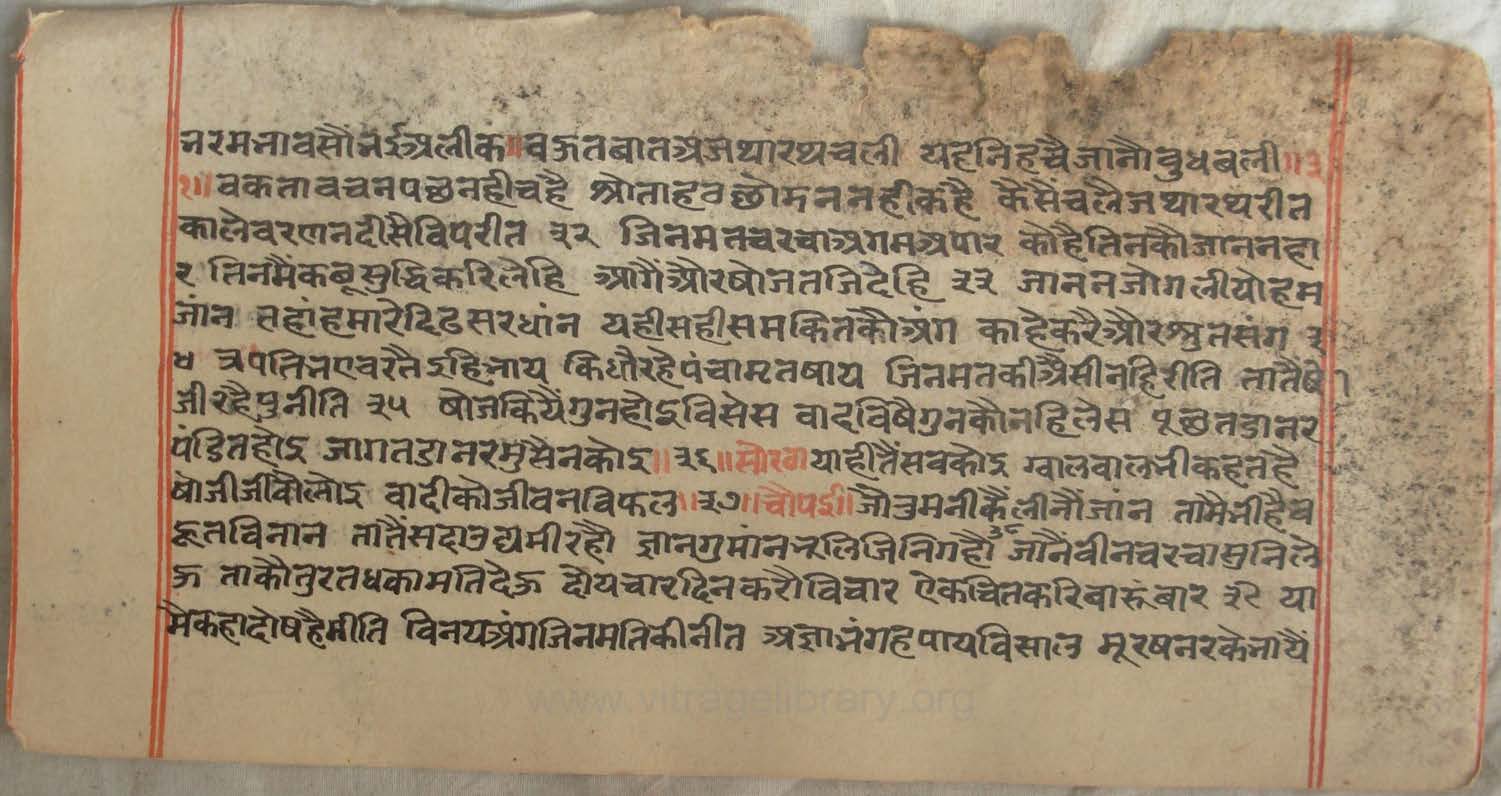 नरमनावसौंनईअलीक॥वऊतबातअजथारथचली यहनिहचैजानौबुधबली॥३
१॥वकतावचनपछनहीचहै श्रोताहवछोमननहीकहै कैसैचलैजथारथरीत
कालेवरणनदीसैविपरीत ३२ जिनमतचरचाअगमअपार कोहैतिनकौजाननहा
र तिनमैंकबूसुद्धिकरिलेहि आगैंऔरषोजतजिदेहि ३३ जाननजोगलीयोहम
जांन तहांहमारेदिढसरधांन यहीसहीसमकितकौअंग काहेकरैऔरश्रुतसंग ३
४ त्रपतिनएवरतैइहिनाय किधौरहैपंचामृतषाय जिनमतकीअैसीनहिरीति तातैषो
जीरहैपुनीति ३५ षोजकियैंगुनहोइविसेस वादविषैगुनकौनहिलेस पूछतडानर
पंडितहोइ जागतडानरमुसैनकोइ॥३६॥सोरठायाहीतैंसबकोइ ग्वालबालनीकहतहै
षोजीजीवौलोइ वादीकोजीवनविफल॥३७॥चौपई॥जौतुमनीकैंलीनौंजांन तामैभीहैब
हूतविनान तातैसदाउद्यमीरहौ ज्ञानगुमांनभूलिजिनिगहौ३८जोनवीनचरचासुनिले
ऊ ताकौतुरतधकामतिदेऊ दोयचारदिनकरौविचार ऐकचितकरिबारूंबार ३९ या
मैकहादोषहैमीति विनयअंगजिनमतिकीनीत अज्ञानंगहपायविसाल मूरषनरकेनायैं
www.vitragelibrary.org